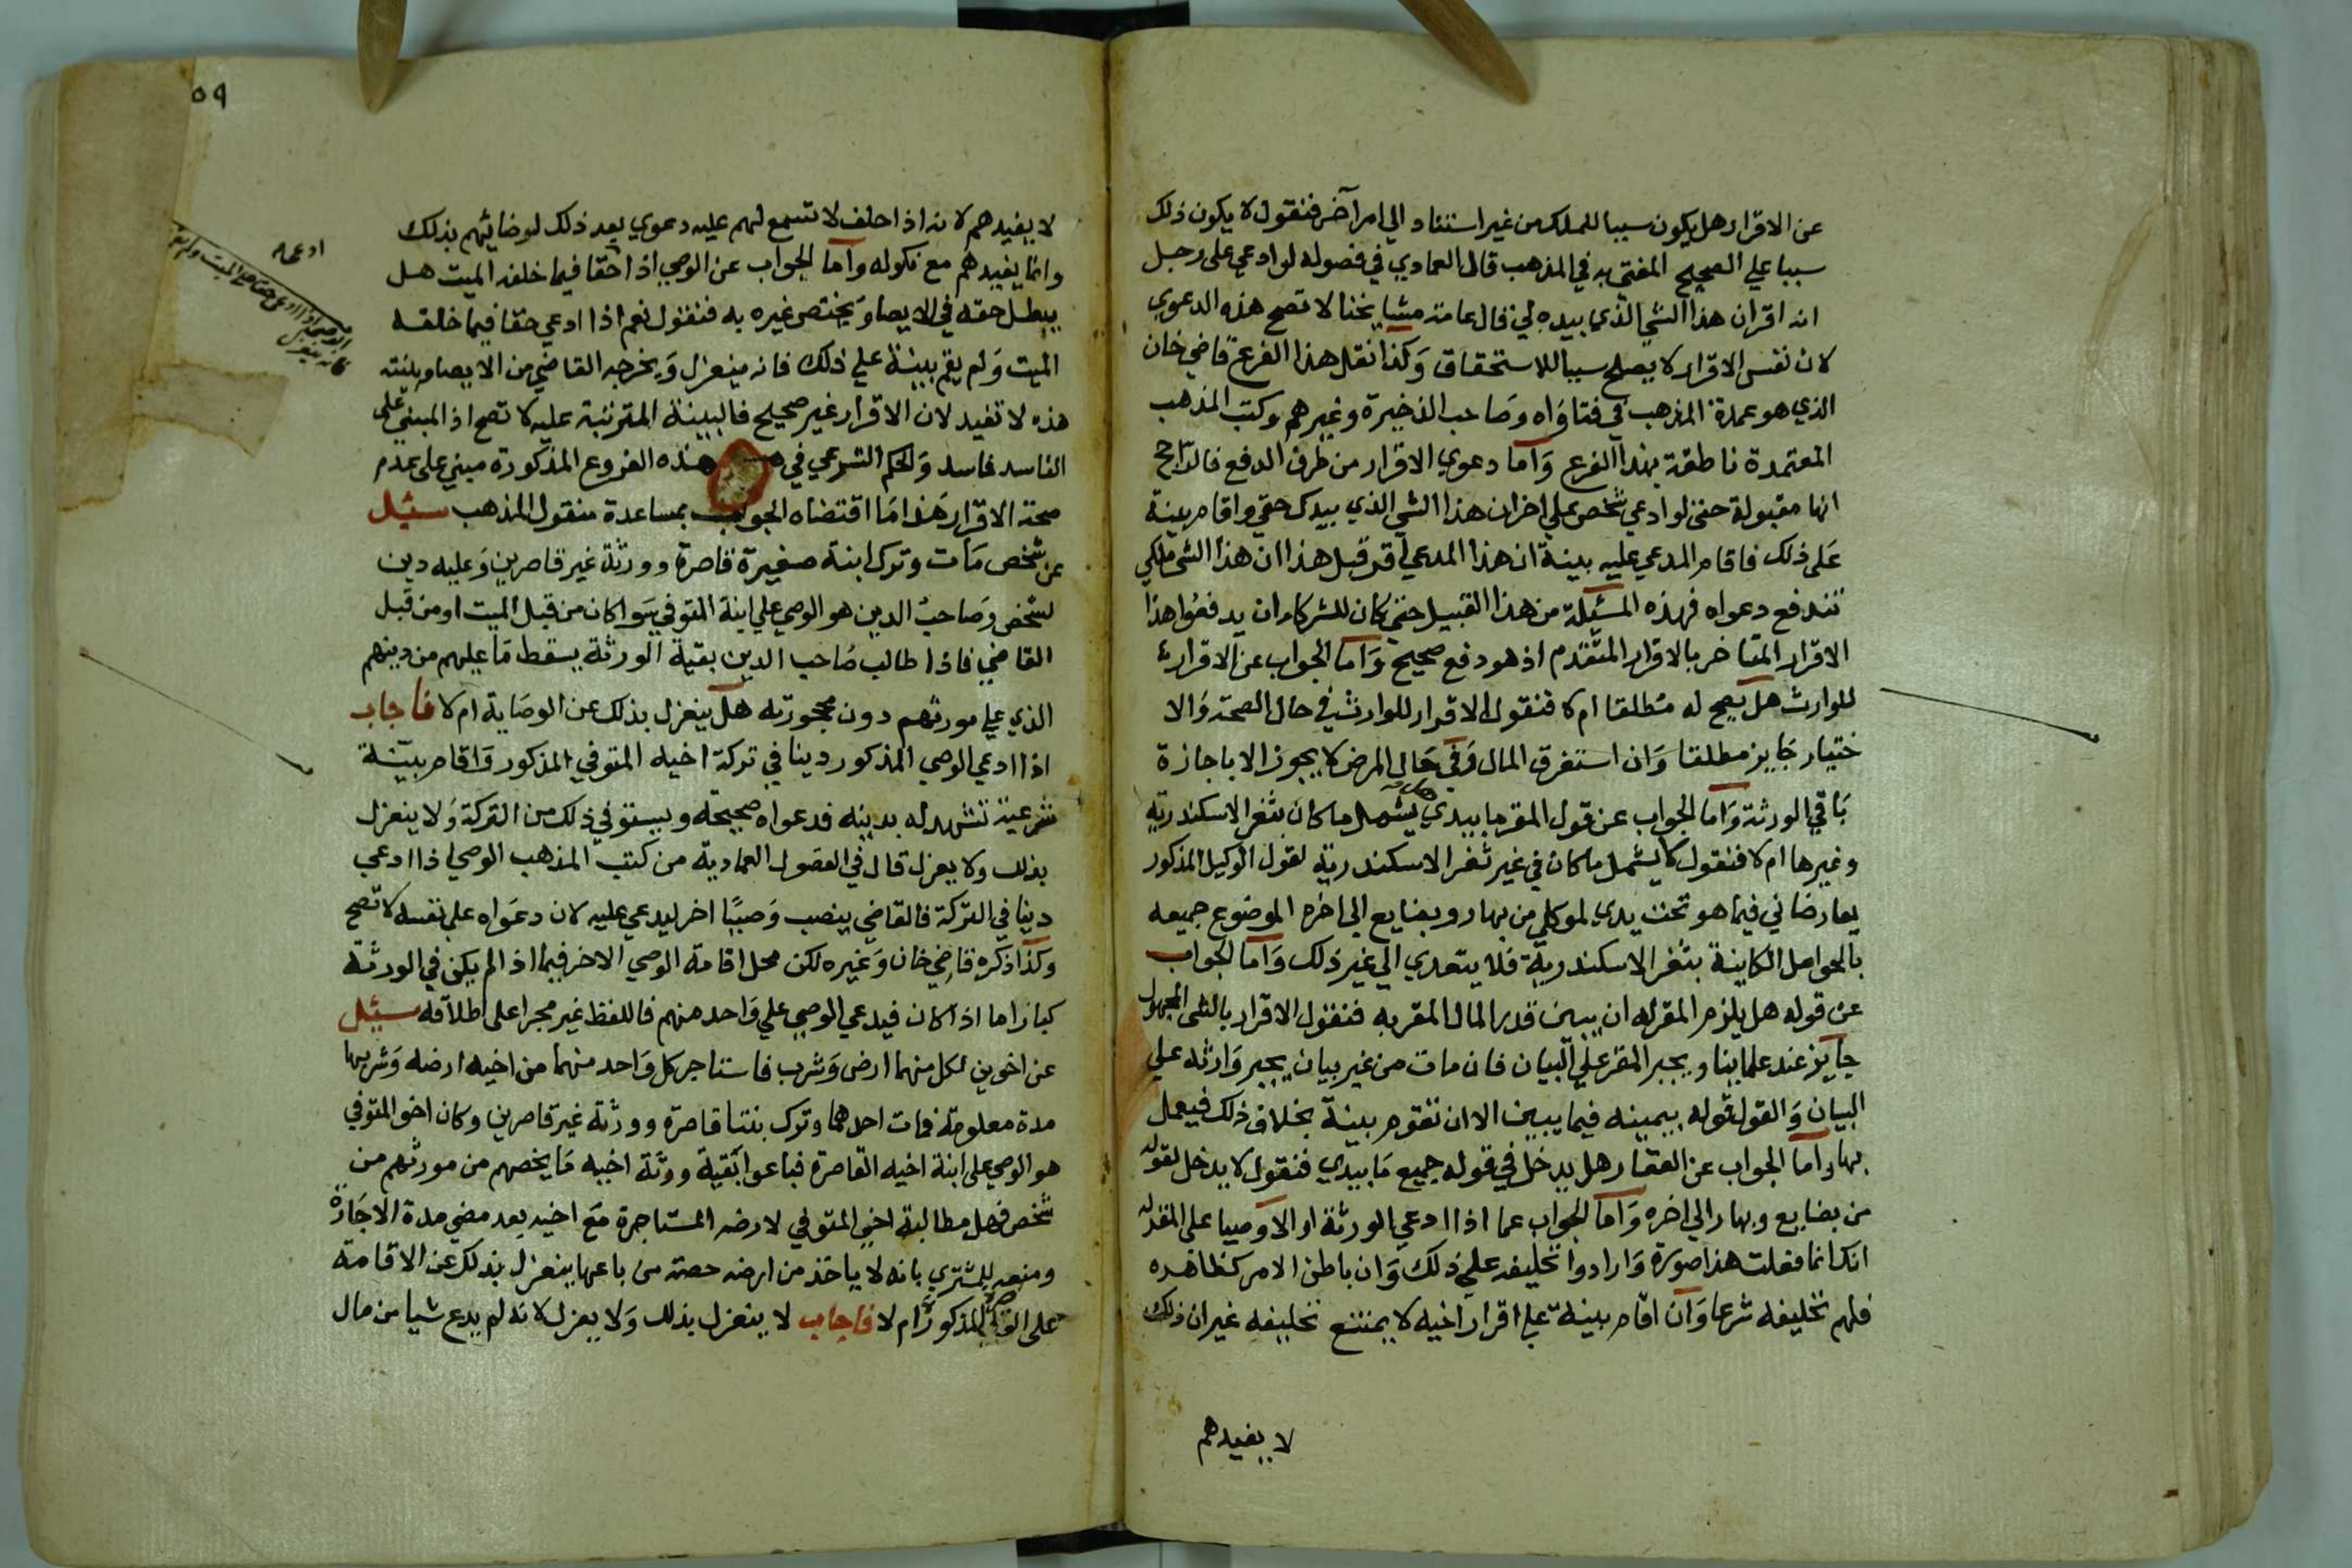 عن الاقرار هل يكون سببا للملك من غير استناد الي امر آخر فنقول لا يكون ذلك
سببا علي الصحيح المفتي به في المذهب قال العمادي في فصوله لو ادعي على رجل
انه اقر ان هذا الشي الذي بيده لي قال عامة مشايخنا لا تصح هذه الدعوي
لان نفس الاقرار لا يصلح سببا للاستحقاق وكذا نقل هذا الفرع قاضي خان
الذي هو عمدة المذهب في فتاواه وصاحب الذخيرة وغيرهم وكتب المذهب
المعتمدة ناطقة بهذا الفرع وأما دعوي الاقرار من طرف الدفع فالراجح
انها مقبولة حتى لو ادعي شخص علي اخر ان هذا الشي الذي بيدك حقي واقام بينة
على ذلك فاقام المدعي عليه بينة ان هذا المدعي اقر قبل هذا ان هذا الشي ملكي
تندفع دعواه فهذه المسئلة من هذا القبيل حتى كان للشركاء ان يدفعوا هذا
الاقرار المتاخر بالاقرار المتقدم اذ هو دفع صحيح وأما الجواب عن الاقرار
للوارث هل يصح له مطلقا ام لا فنقول الاقرار للوارث في حال الصحة والا
ختيار جايز مطلقا وان استغرق المال وفي حال المرض لا يجوز الا باجازة
باقي الورثة وأما الجواب عن قول المقر ما بيدي هل يشمل ما كان بثغر الاسكندرية
وغيرها ام لا فنقول لا يشمل ما كان في غير ثغر الاسكندرية لقول الوكيل المذكور
يعارضاني فيما هو تحت يدي لموكلي من بهار وبضايع الى اخره الموضوع جميعه
بالحواصل الكاينة بثغر الاسكندرية فلا يتعدي الي غير ذلك وأما الجواب
عن قوله هل يلزم المقر له ان يبين قدر المال المقر به فنقول الاقرار بالشى المجهول
جايز عند علماينا ويجبر المقر علي البيان فان مات من غير بيان يجبر وارثه علي
البيان والقول قوله بيمينه فيما يبين الا ان تقوم بينة بخلاف ذلك فيعمل
بها وأما الجواب عن العقار هل يدخل في قوله جميع ما بيدي فنقول لا يدخل لقوله
من بضايع وبهار الي اخره وأما الجواب عما اذا ادعي الورثة او الاوصيا على المقر له
انك انما فعلت هذا صورة وارادوا تحليفه علي ذلك وان باطن الامر كظاهره
فلهم تحليفه شرعا وان اقام بينة علي اقرار اخيه لا يمتنع تحليفه غير ان ذلك
لا يفيدهم
٥٩
لا يفيدهم لانه اذا حلف لا تسمع لهم عليه دعوي بعد ذلك لو ضائهم بذلك
وانما يفيدهم مع نكوله وأما الجواب عن الوصي اذا حقا فيما خلفه الميت هل
يبطل حقه في الايصا ويختص غيره به فنقول نعم اذا ادعي حقا فيما خلفه
الميت ولم يقم بينة علي ذلك فانه ينعزل ويخرجه القاضي من الايصا وبينته
هذه لا تفيد لان الاقرار غير صحيح فالبينة المترتبة عليه لا تصح اذ المبني على
الفاسد فاسد والحكم الشرعي في هذه الفروع المذكورة مبني على عدم
صحة الاقرار هذا ما اقتضاه الجواب بمساعدة منقول المذهب سئل
عن شخص مات وترك ابنة صغيرة قاصرة وورثة غير قاصرين وعليه دين
لشخص وصاحب الدين هو الوصي علي ابنة المتوفي سوا كان من قبل الميت او من قبل
القاضي فاذا طالب صاحب الدين بقية الورثة بقسط ما عليهم من دينهم
الذي علي مورثهم دون محجورته هل ينعزل بذلك عن الوصاية ام لا فاجاب
اذا ادعي الوصي المذكور دينا في تركة اخيه المتوفي المذكور واقام بينة
شرعية تشهد له بدينه فدعواه صحيحة ويستوفي ذلك من التركة ولا ينعزل
بذلك ولا يعزل قال في الفصول العمادية من كتب المذهب الوصي اذا ادعي
دينا في التركة فالقاضي ينصب وصيا اخر ليدعي عليه لان دعواه على نفسه لا تصح
وكذا ذكره قاضي خان وغيره لكن محل اقامة الوصي الاخر فيما اذا لم يكن في الورثة
كبار اما اذا كان فيدعي الوصي علي واحد منهم فاللفظ غير مجرا على اطلاقه سئل
عن اخوين لكل منهما ارض وشرب فاستاجر كل واحد منهما من اخيه ارضه وشربها
مدة معلومة فمات احدهما وترك بنتا قاصرة وورثة غير قاصرين وكان اخو المتوفي
هو الوصي على ابنة اخيه القاصرة فباعوا بقية ورثة اخيه ما يخصهم من مورثهم من
شخص فهل مطالبة اخي المتوفي لارضه المستاجرة مع اخيه بعد مضي مدة الاجارة
ومنعه للمشتري بانه لا ياخذ من ارضه حصة من باعها ينعزل بذلك عن الاقامة
على المذكور ام لا فاجاب لا ينعزل بذلك ولا يعزل لانه لم يدع شيا من مال